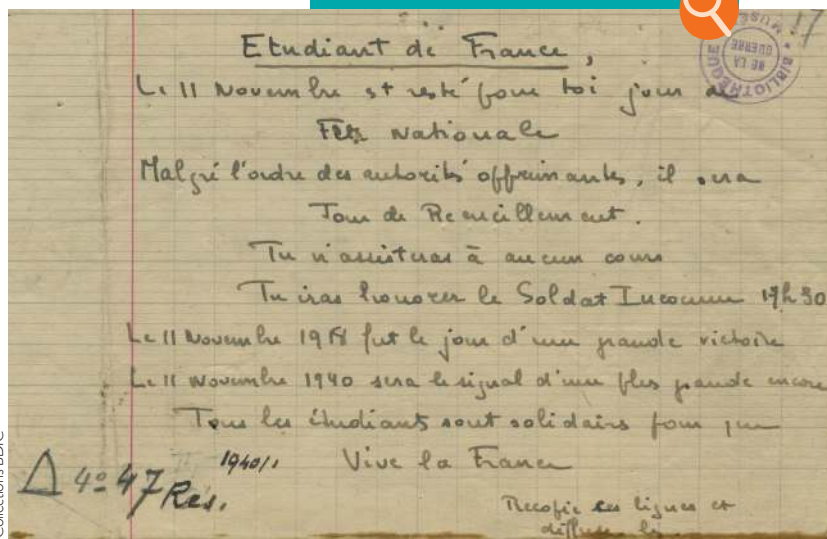 Etudiant de France,
Le 11 Novembre est resté pour toi jour de
Fête Nationale
Malgré l'ordre des autorités opprimantes, il sera
Jour de Recueillement.
Tu n'assisteras à aucun cours
Tu iras honorer le Soldat Inconnu 17h30
Le 11 Novembre 1918 fut le jour d'une grande victoire
Le 11 Novembre 1940 sera le signal d'une plus grande encore
Tous les étudiants sont solidaires pour que
Vive la France
Recopie ces lignes et
diffuse les
1940/1
Δ 4º 47 Res.
BIBLIOTHÈQUE
MUSÉE
DE LA
GUERRE
Collections BDIC